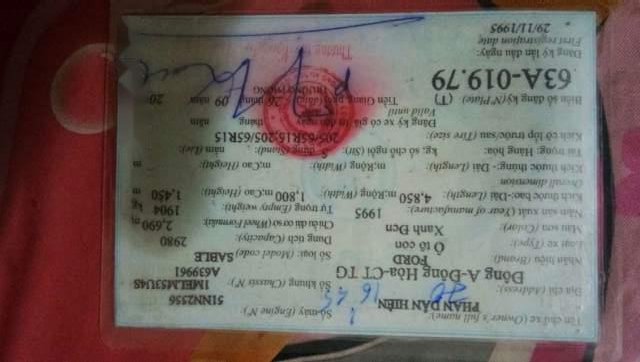 Tên chủ xe (Owner's full name): PHAN DÂN HIÊN Số máy (Engine N°): 51NN2556
Địa chỉ (Address): Đông A-Đông Hòa-CT TG Số khung (Chassis N°): 1MELM53U4S
A639961
Nhãn hiệu (Brand): FORD Số loại (Model code): SABLE
Loại xe (Type): Ô tô con Dung tích (Capacity): 2980
Màu sơn (Color): Xanh Đen Chiều dài cơ sở (Wheel Formula): 2,690 m
Năm sản xuất (Year of manufacture): 1995 Tự trọng (Empty weight): 1904 kg
Kích thước bao:-Dài (Length): 4,850 m;Rộng (Width): 1,800 m.Cao (Height): 1,450 m
Overall dimension
Kích thước thùng: - Dài (Length): m;Rộng (Width): m.Cao (Height): m
Tải trọng: Hàng hóa: kg, số chỗ ngồi (Sit): 5 đứng (Stand): nằm (Lie):
Kích cỡ lốp trước/sau (Tire size): 205/65R15;205/65R15
Đăng ký xe có giá trị đến ngày tháng năm
Valid until
Biển số đăng ký(N°Plate) (T) Tiền Giang, ngày 26 tháng 09 năm 20
63A-019.79 TRƯỞNG PHÒNG
Đăng ký lần đầu ngày:
First registration date
29/11/1995